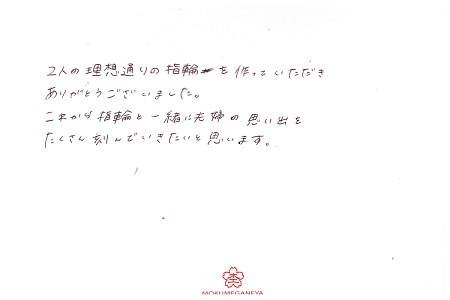 2人の理想通りの指輪を作っていただき
ありがとうございました。
これから指輪と一緒に夫婦の思い出を
たくさん刻んでいきたいと思います。
MOKUMEGANEYA